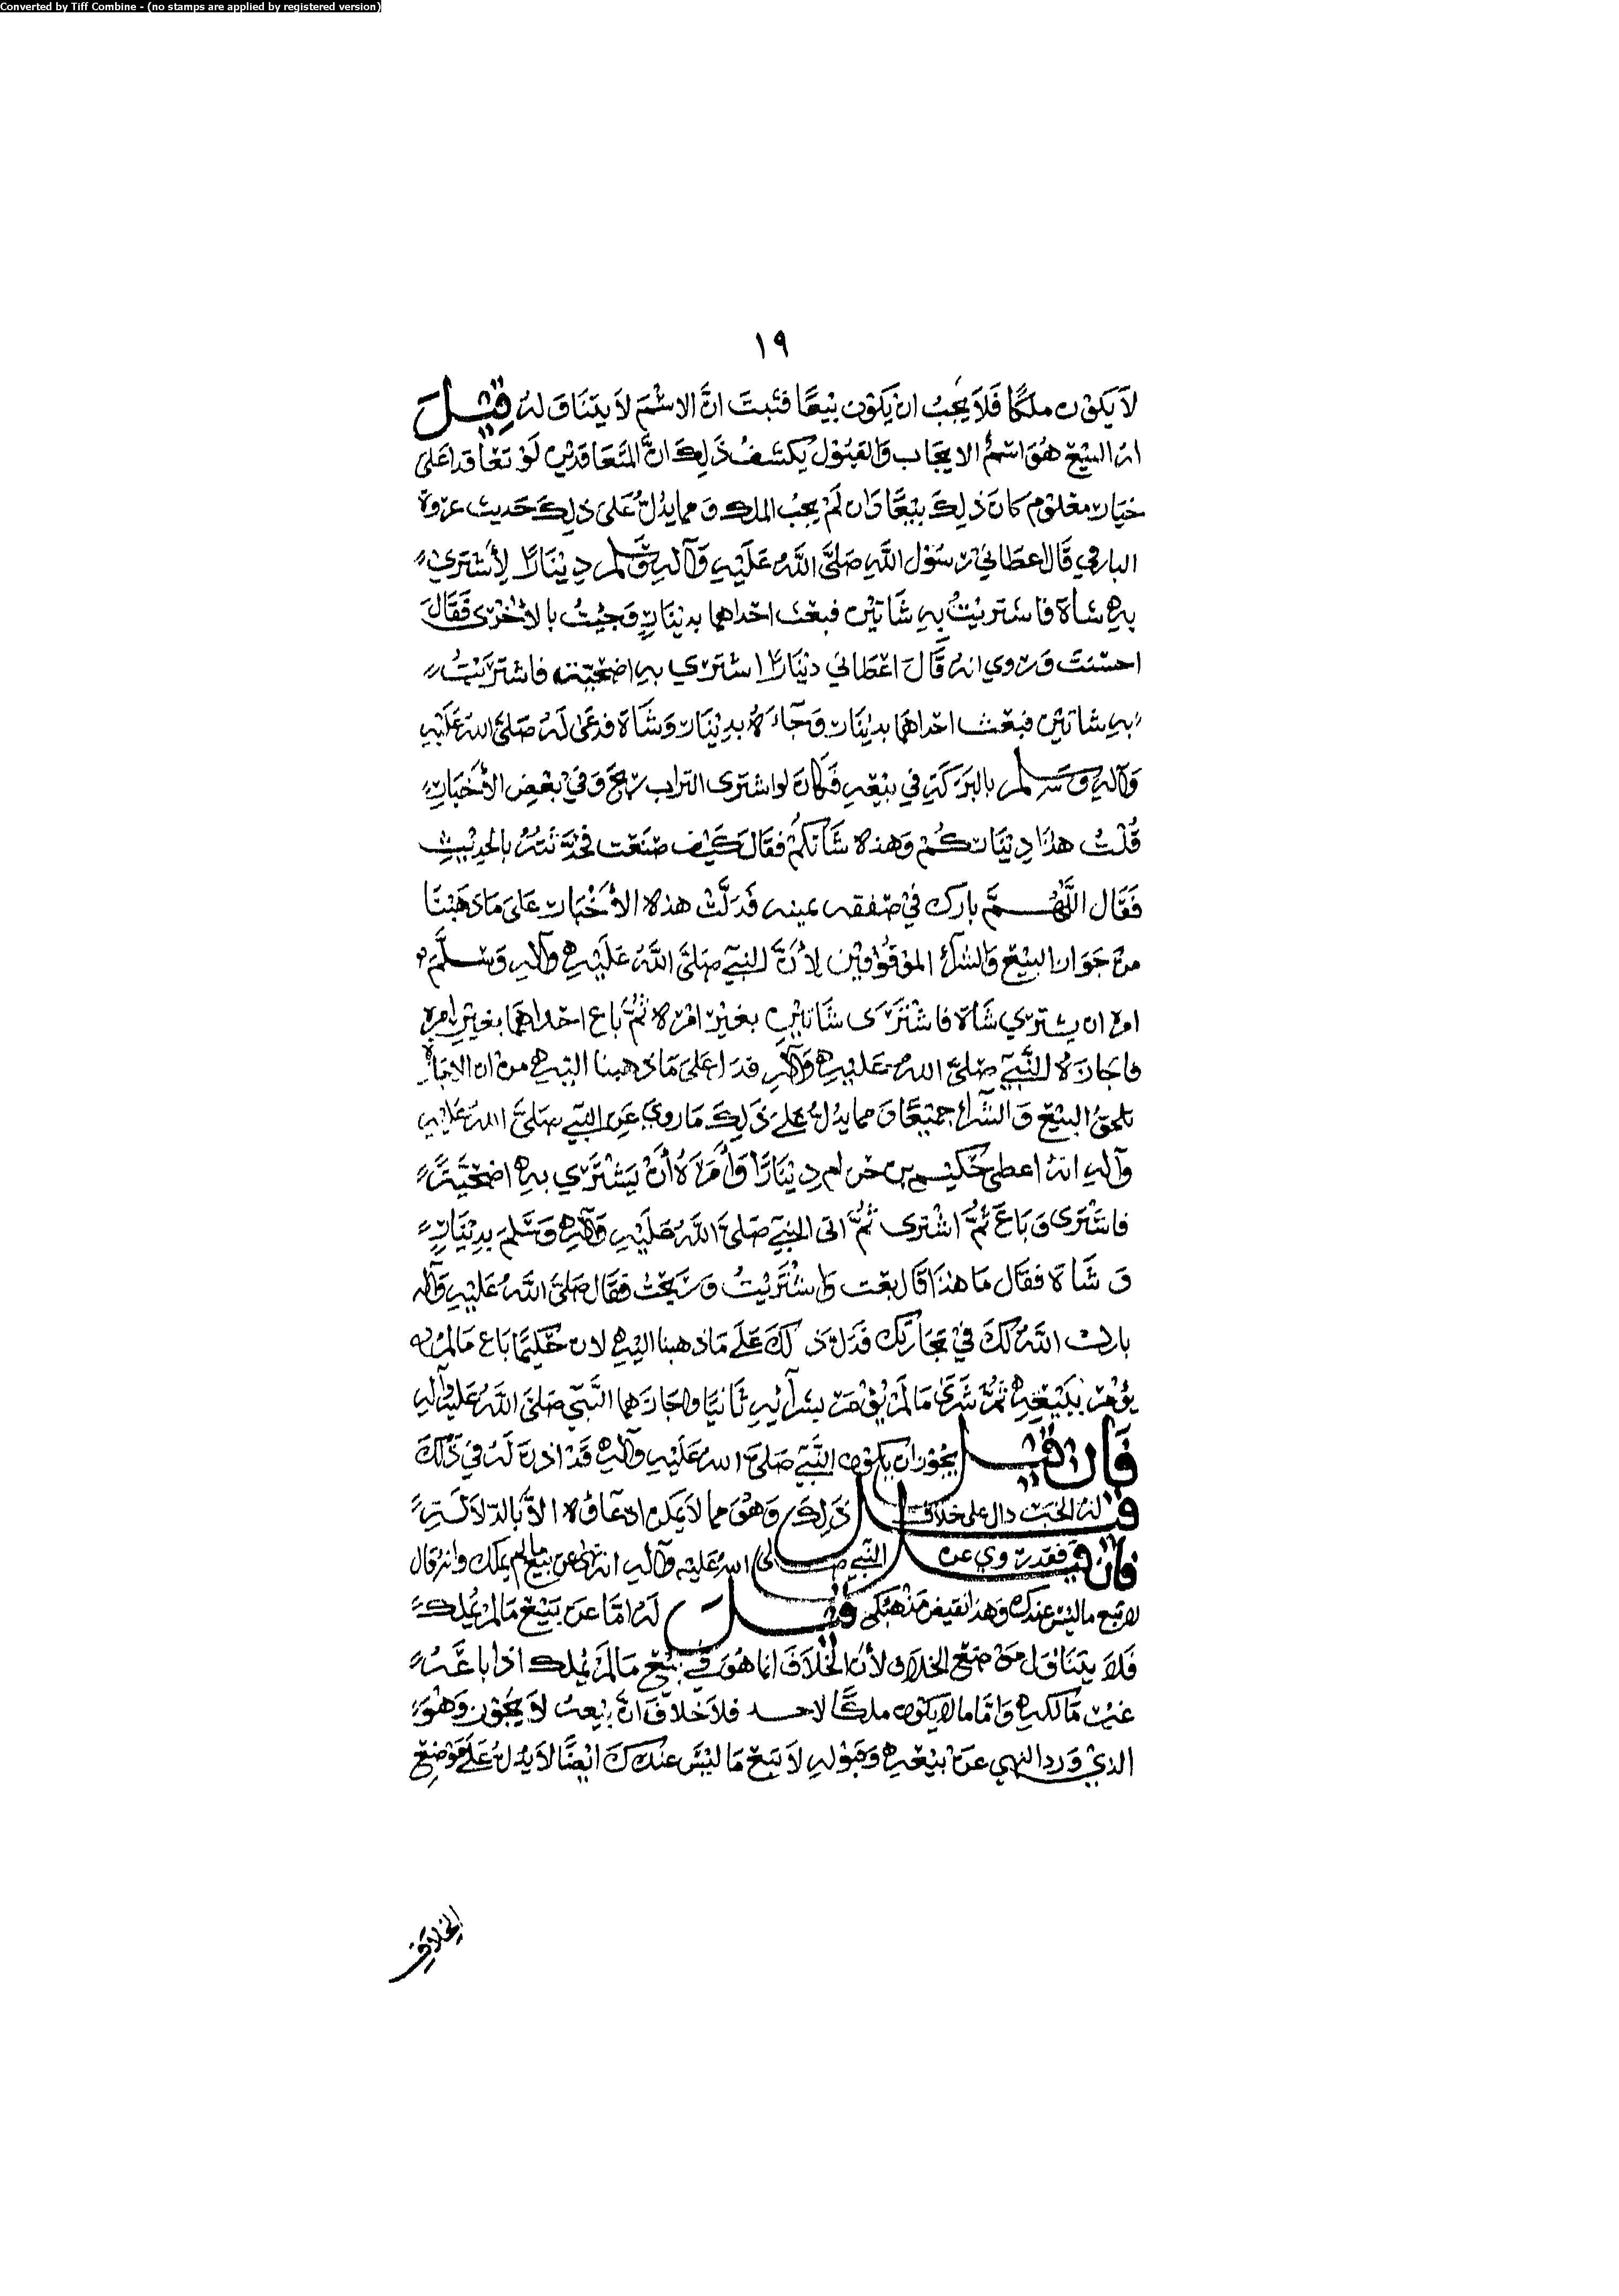 Converted by Tiff Combine - (no stamps are applied by registered version)
١٩
لا يكون ملكًا فلا يجب ان يكون بيعًا فثبت انَّ الاسم لا يتناوله قيل
ان البيع هو اسم الايجاب والقبول يكشف ذلك انَّ المتعاقدين لو تعاقدا على
خيار معلوم كان ذلك بيعًا وان لم يجب الملك ومما يدل على ذلك حديث عروة
البارقي قال اعطاني رسول الله صلى الله عليه وآله وسلم دينارًا لأشتري
به شاة فاشتريت به شاتين فبعت احداهما بدينار وجئت بالأخرى فقال
احسنت وروي انه قال اعطاني دينارًا اشتري به اضحية فاشتريت
به شاتين فبعت احداهما بدينار وجاءه بدينار وشاة فدعى له صلى الله عليه
وآله وسلم بالبركة في بيعه فكان لو اشترى التراب ربح وفي بعض الأخبار
قلت هذا ديناركم وهذه شاتكم فقال كيف صنعت فحدثته بالحديث
فقال اللهم بارك في صفقه يمينه فدلت هذه الأخبار على ما ذهبنا
من جواز البيع والشراء الموقوفين لأنَّ النبي صلى الله عليه وآله وسلم
امره ان يشتري شاة فاشترى شاتين بغير امره ثم باع احداهما بغير امره
فاجازه النبي صلى الله عليه وآله فدل على ما ذهبنا اليه من ان الاجازة
تلحق البيع والشراء جميعًا ومما يدل على ذلك ما روي عن النبي صلى الله عليه
وآله انه اعطى حكيم بن حزام دينارًا وأمره أن يشتري به اضحية
فاشترى وباع ثم اشترى ثم اتى النبي صلى الله عليه وآله وسلم بدينار
وشاة فقال ما هذا قال بعت واشتريت وربحت فقال صلى الله عليه وآله
بارك الله لك في تجارتك فدل ذلك على ما ذهبنا اليه لان حكيمًا باع ما لم
يؤمر ببيعه ثم شرى ما لم يؤمر بشرائه ثانيا واجازهما النبي صلى الله عليه وآله
فان قيل يجوز ان يكون النبي صلى الله عليه وآله قد اذن له في ذلك
قيل له الخبر دال على خلاف ذلك وهو مما لا يمكن ادعاؤه الا بالدلالة
فان قيل فقد روي عن النبي صلى الله عليه وآله انه نهى عن بيع ما لم يملك وانه قال
لا تبع ما ليس عندك وهذا نقيض مذهبكم قيل له اما عن بيع ما لم يملك
فلا يتناول موضع الخلاف لأن الخلاف انما هو في بيع ما لم يملك اذا باعه
غير مالكه واما ما لا يكون ملكًا لاحد فلا خلاف انَّ بيعه لا يجوز وهو
الذي ورد النهي عن بيعه وقوله لا تبع ما ليس عندك ايضًا لا يدل على موضع
الخلاف